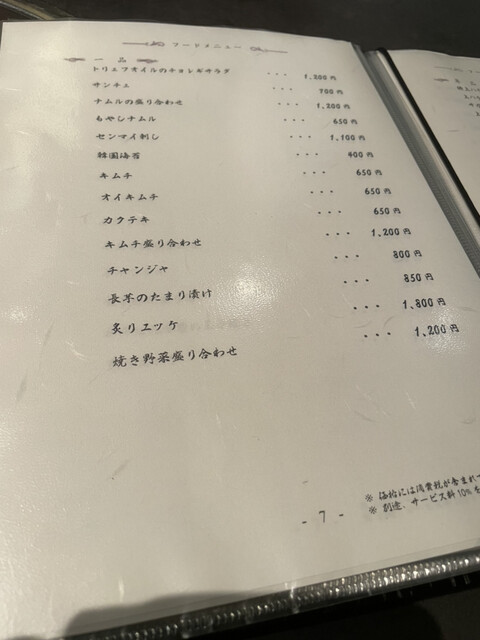 フードメニュー
一品
トリュフオイルのチョレギサラダ ・・・ 1,200円
サンチュ ・・・ 700円
ナムルの盛り合わせ ・・・ 1,200円
もやしナムル ・・・ 650円
センマイ刺し ・・・ 1,100円
韓国海苔 ・・・ 400円
キムチ ・・・ 650円
オイキムチ ・・・ 650円
カクテキ ・・・ 650円
キムチ盛り合わせ ・・・ 1,200円
チャンジャ ・・・ 800円
長芋のたまり漬け ・・・ 850円
炙りユッケ ・・・ 1,800円
焼き野菜盛り合わせ ・・・ 1,200円
※ 価格には消費税が含まれ
※ 別途、サービス料10%を
- 7 -